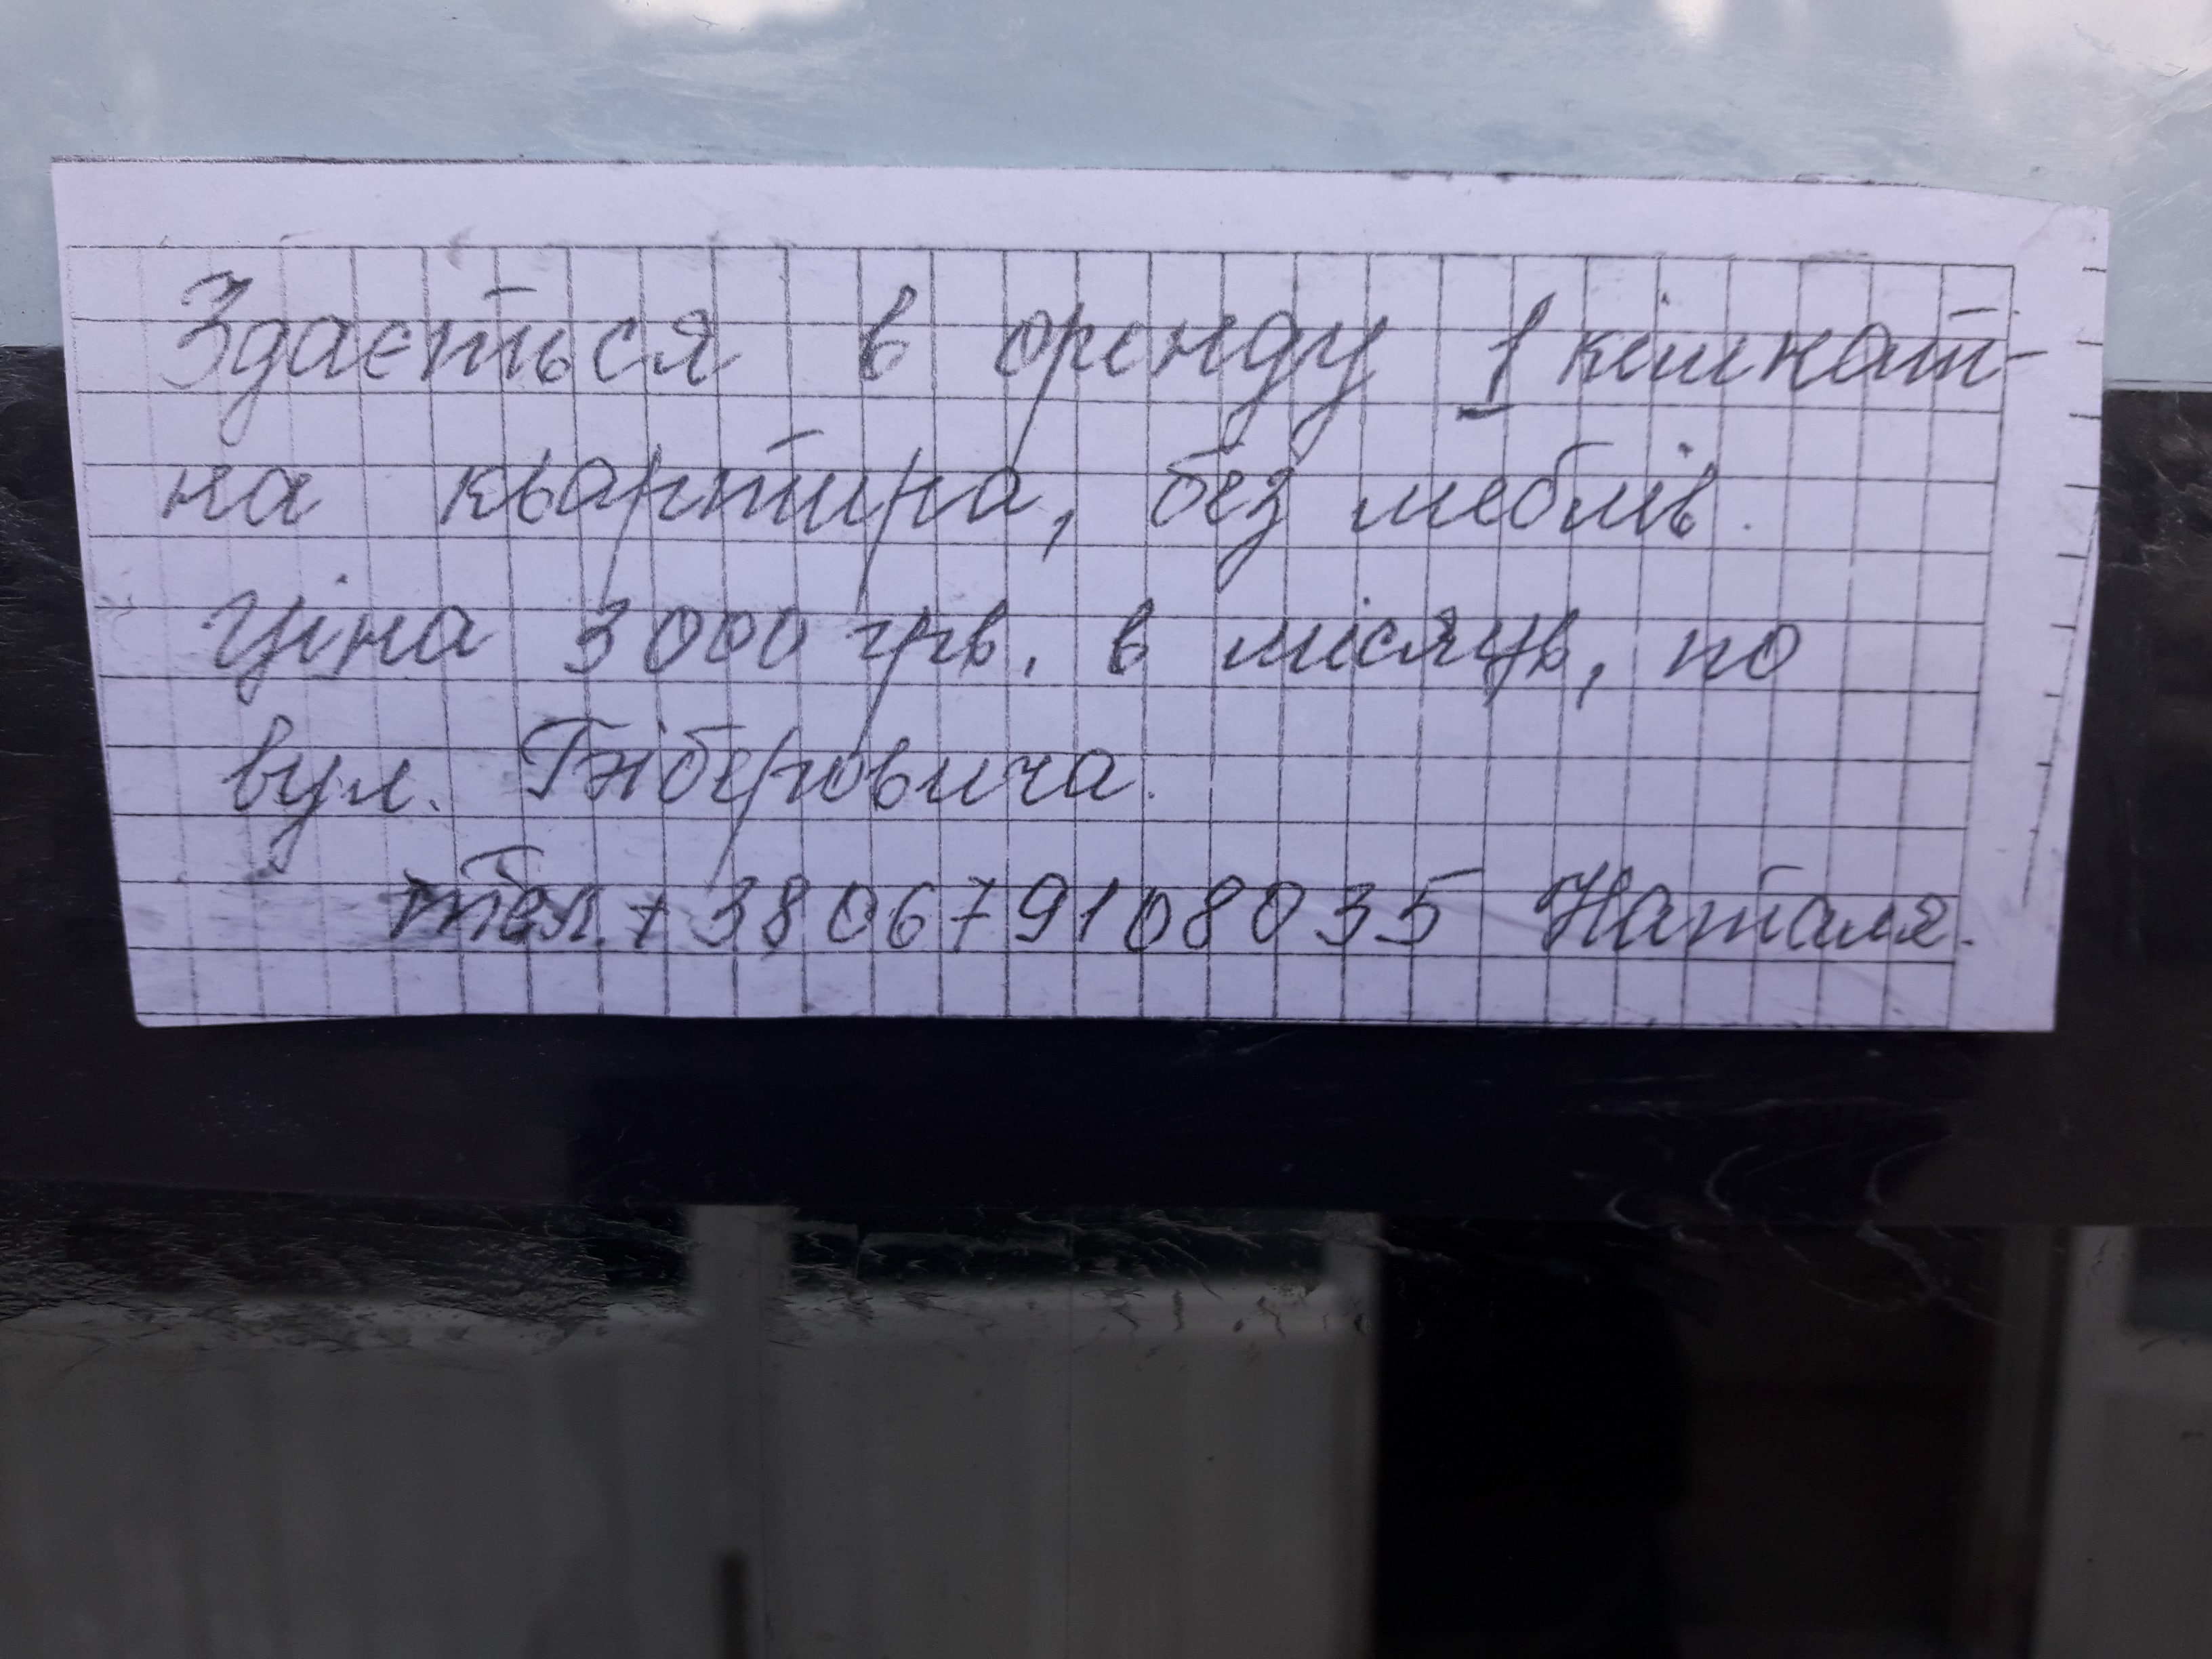 Здається в оренду 1 кімнат-
на квартира, без меблів.
Ціна 3000 грв. в місяць, по
вул. Гжіберовича.
тел. + 380679108035 Наталя.